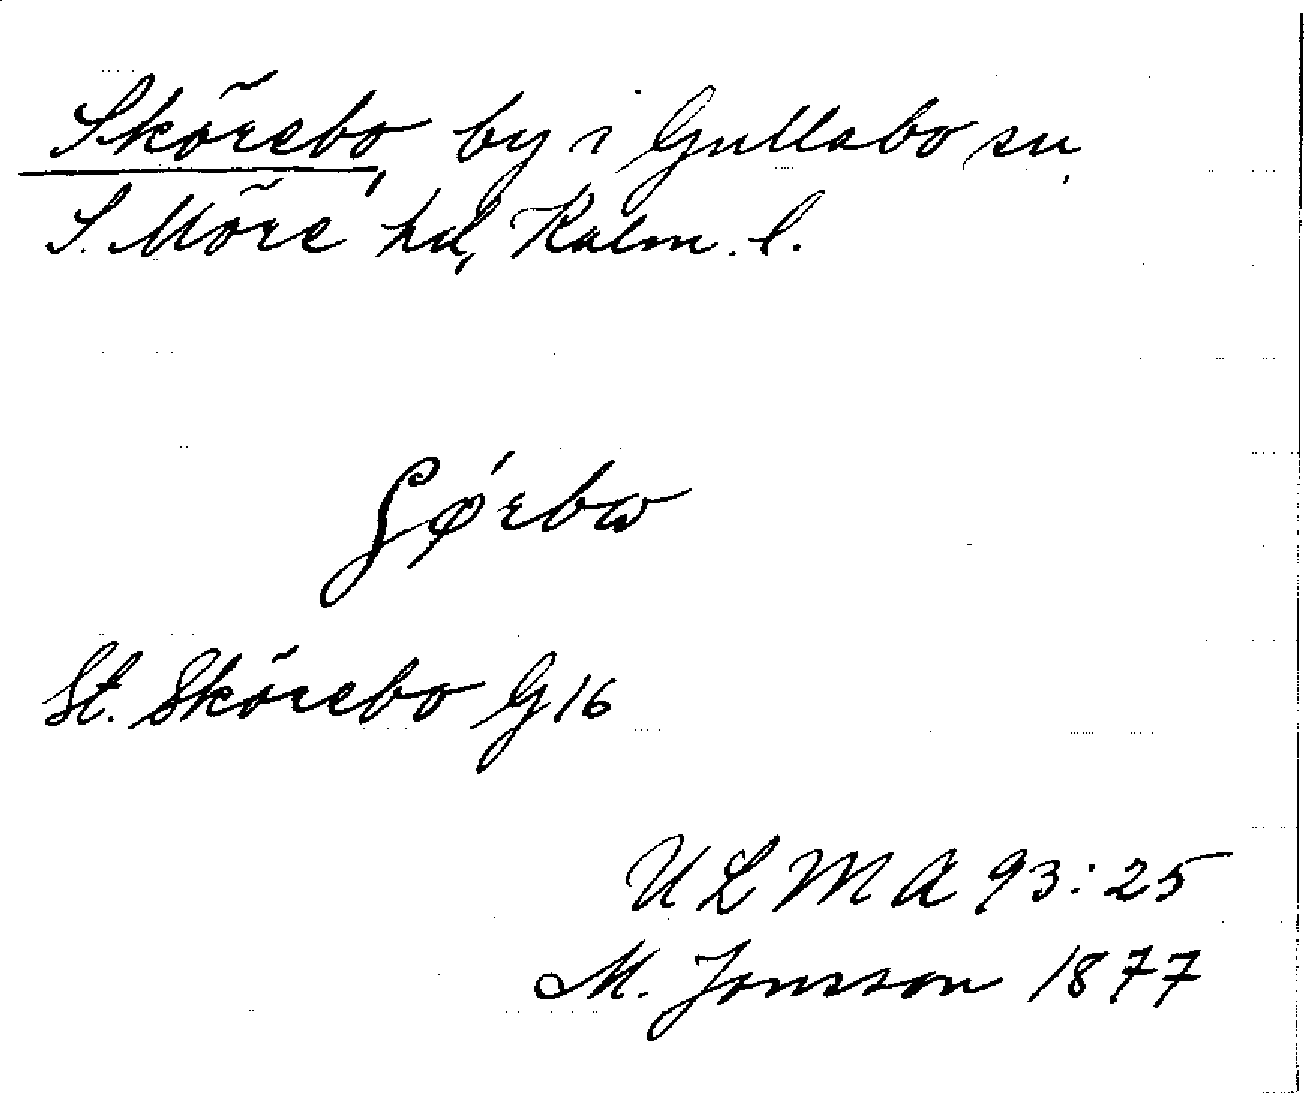 Skörebo, by i Gullabo sn,
S. Möre hd, Kalm. l.
St. Skörebo G16
ULMA 93:25
M. Jonsson 1877